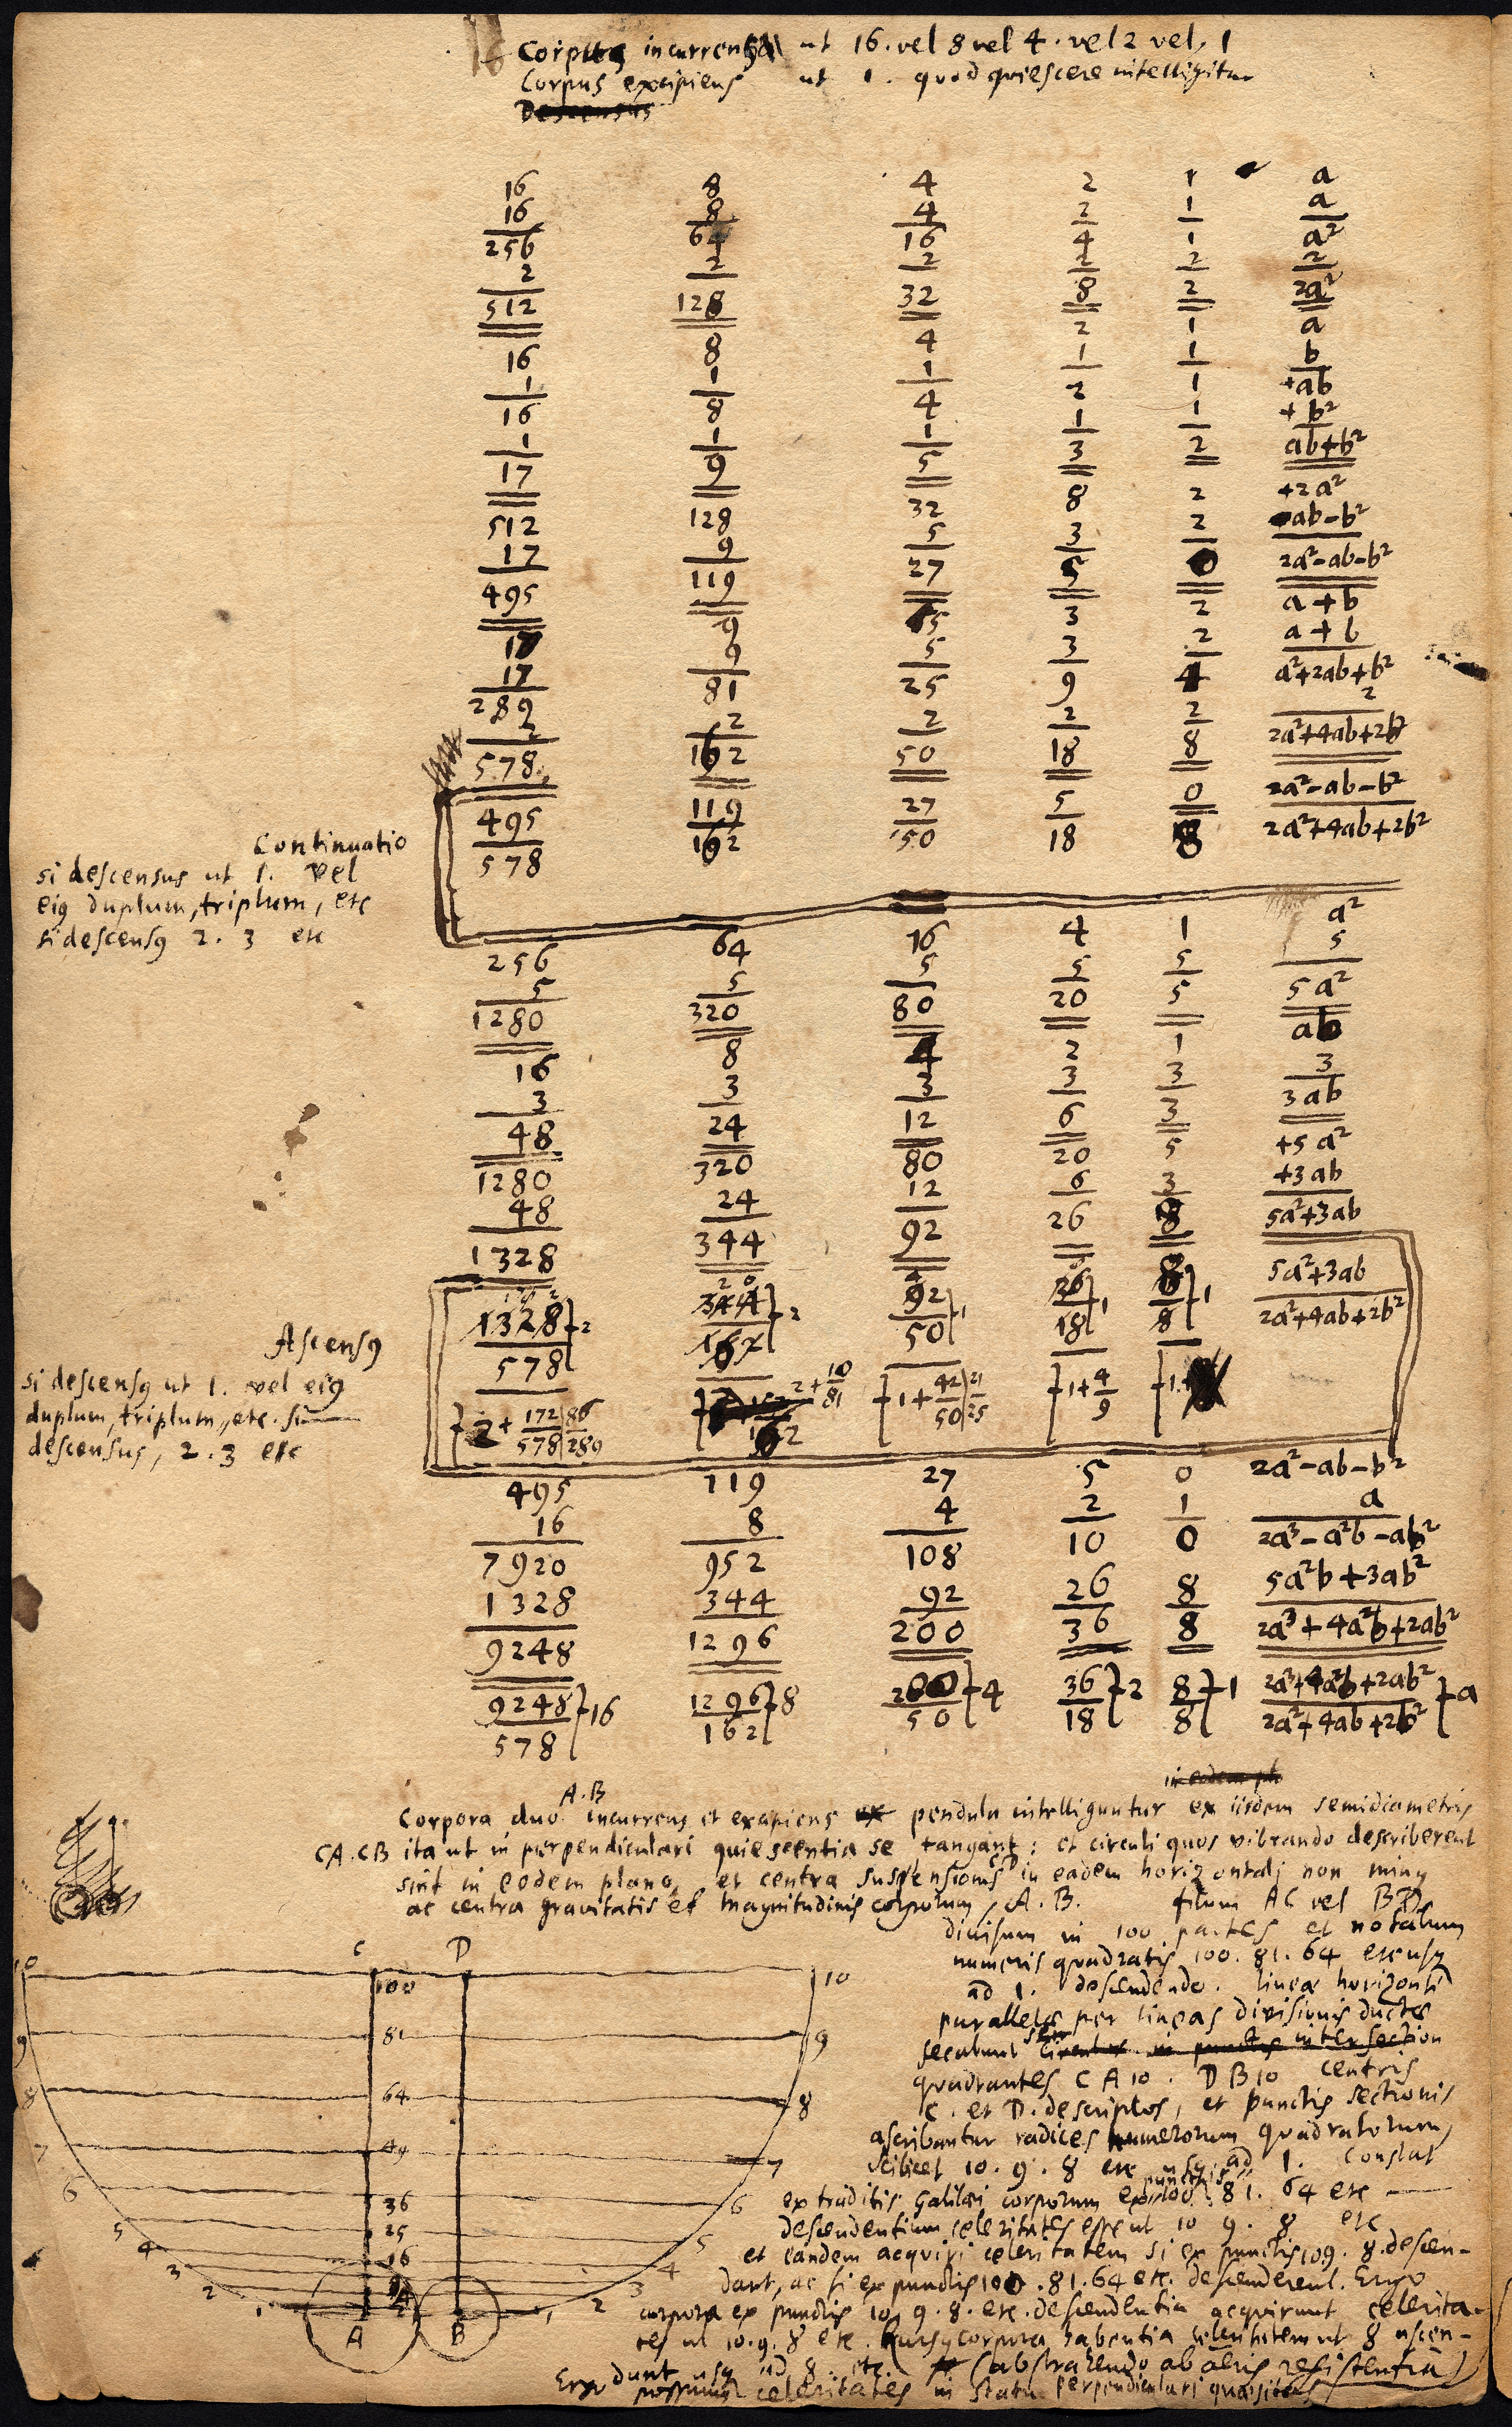 Corpus incurrens ut 16. vel 8 vel 4. vel 2 vel. 1
Corpus excipiens ut 1. quod quiescere intelligitur
Descensus
16 8 4 2 1 a
16 8 4 2 1 a
256 64 16 4 1 a²
2 2 2 2 2 2
512 128 32 8 2 2a²
16 8 4 2 1 a
1 1 1 1 1 b
16 8 4 2 1 +ab
1 1 1 1 1 + b²
17 9 5 3 2 ab+b²
512 128 32 8 2 +2a²
17 9 5 3 2 -ab-b²
495 119 27 5 0 2a²-ab-b²
17 9 5 3 2 a+b
17 9 5 3 2 a+b
289 81 25 9 4 a²+2ab+b²
2 2 2 2 2 2
578 162 50 18 8 2a²+4ab+2b²
Continuatio
si descensus ut 1. vel
eiꝰ duplum, triplum, etc
si descensꝰ 2. 3 etc
495 119 27 5 0 2a²-ab-b²
578 162 50 18 8 2a²+4ab+2b²
256 64 16 4 1 a²
5 5 5 5 5 5
1280 320 80 20 5 5a²
16 8 4 2 1 ab
3 3 3 3 3 3
48 24 12 6 3 3ab
1280 320 80 20 5 +5a²
48 24 12 6 3 +3ab
1328 344 92 26 8 5a²+3ab
Ascensꝰ
si descensꝰ ut 1. vel eiꝰ
duplum, triplum, etc. si
descensus, 2. 3 etc
1328 }2 344 }2 92 }1 26 }1 8 }1 5a²+3ab
578 162 50 18 8 2a²+4ab+2b²
}2+ 172/578 | 86/289 2+ 10/81 }1+ 42/50 | 21/25 }1+ 4/9 }1
495 119 27 5 0 2a²-ab-b²
16 8 4 2 1 a
7920 952 108 10 0 2a³-a²b-ab²
1328 344 92 26 8 5a²b+3ab²
9248 1296 200 36 8 2a³+4a²b+2ab²
9248 }16 1296 }8 200 }4 36 }2 8 }1 2a³+4a²b+2ab² }a
578 162 50 18 8 2a²+4ab+2b²
A.B in eodem
Corpora duo incurrens et excipiens ex pendula intelliguntur ex iisdem semidiametris
CA.CB ita ut in perpendiculari quiescentia se tangant: et circuli quos vibrando describerent
sint in eodem plano, et centra suspensionis CD in eadem horizontali non minꝰ
ac centra gravitatis et magnitudinis corporum, A.B. filum AC vel BD
divisum in 100 partes et notatum
numeris quadratis 100. 81. 64 etc usꝗ
ad 1. descendendo. lineae horizonti
parallelae per lineas divisionis ductae
secabunt circulos in punctis intersection
quadrantes C A 10. D B 10 centris
C. et D. descriptos, et punctis sectionis
ascribantur radices numerorum quadratorum,
scilicet 10. 9. 8 etc usꝗ ad 1. Constat
ex traditis Galilaei corporum ex punctis 100. 81. 64 etc
descendentium celeritates esse ut 10 9. 8 etc
et eandem acquiri celeritatem si ex punctis 10 9. 8. descen-
dant, ac si ex punctis 100. 81. 64 etc. descenderent. Ergo
corpora ex punctis 10. 9. 8. etc. descendentia acquirunt celerita-
tes ut 10. 9. 8 etc. Rursꝰ corpora habentia celeritatem ut 8 ascen-
dunt usꝗ ad 8. etc. (abstrahendo ab aëris resistentia)
Ergo possumus celeritates in statu perpendiculari quaesitas
C D
10 100 10
9 81 9
8 64 8
7 49 7
6 36 6
5 25 5
4 16 4
3 9 3
2 4 2
1 1
A B